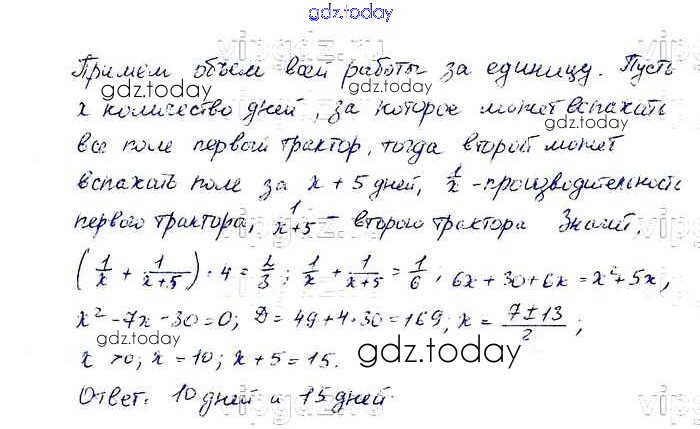 gdz.today
Примем объем всей работы за единицу. Пусть
x количество дней, за которое может вспахать
все поле первый трактор, тогда второй может
вспахать поле за x + 5 дней, 1/x - производительность
первого трактора, 1/(x+5) - второго трактора. Значит,
(1/x + 1/(x+5)) · 4 = 2/3; 1/x + 1/(x+5) = 1/6, 6x + 30 + 6x = x² + 5x,
x² - 7x - 30 = 0; D = 49 + 4·30 = 169; x = (7 ± 13)/2;
x > 0; x = 10; x + 5 = 15.
Ответ: 10 дней и 15 дней.
gdz.today
gdz.today
gdz.today
gdz.today
gdz.today
gdz.today